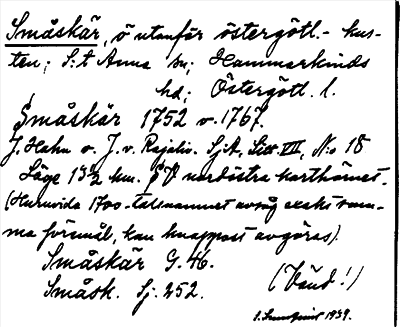 Småskär, ö utanför östergötl.- kus-
ten; S:t Anna sn; Hammarkinds
hd; Östergötl. l.
Småskär 1752 o. 1767.
J. Hahn o. J. v. Rajalin. Sj.A, Litt VII, N:o 18
Läge 13½ km. SV nordöstra karthörnet.
(Huruvida 1700-tallsnamnet avsåg exakt sam-
ma föremål, kan knappast avgöras).
Småskär G. 46.
Småsk. Sj. 252.
(Vänd!)
1939.